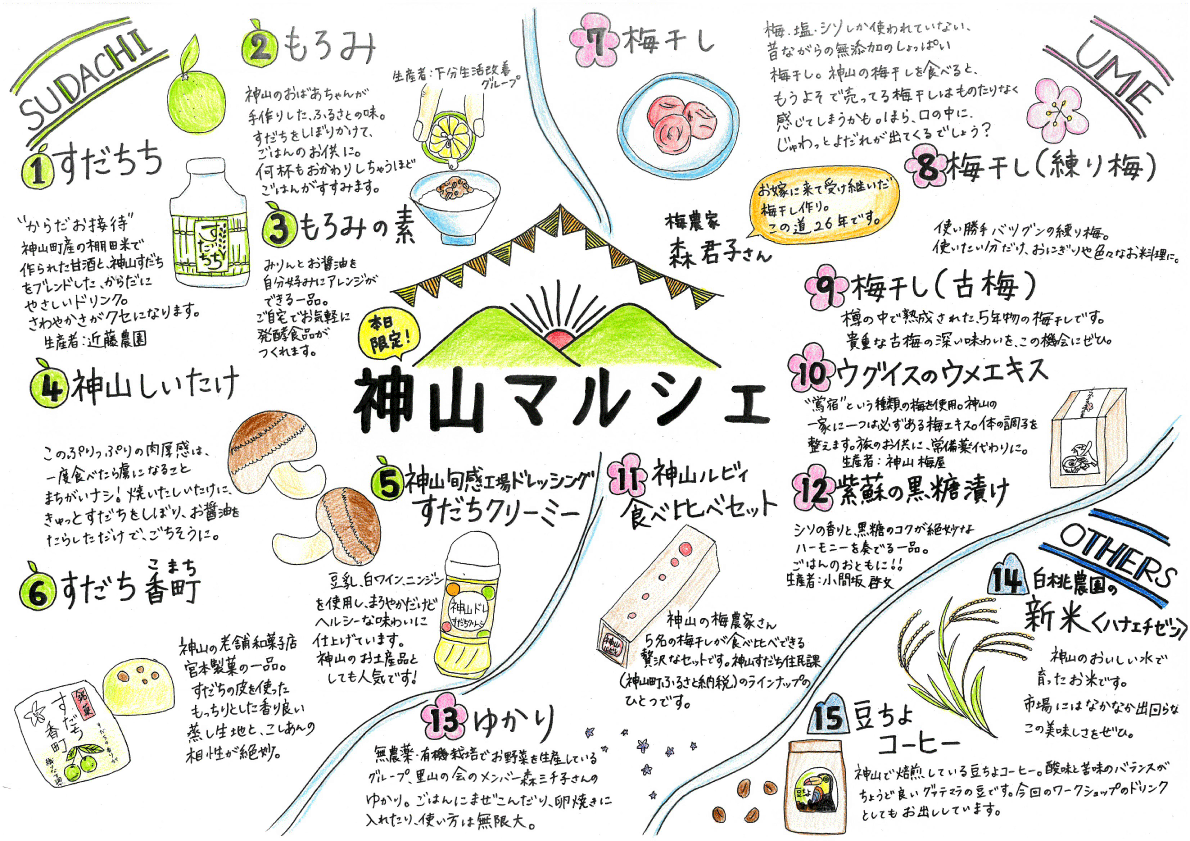 SUDACHI
1 すだちち
"からだお接待"
神山町産の棚田米で
作られた甘酒と、神山すだち
をブレンドした、からだに
やさしいドリンク。
さわやかさがクセになります。
生産者:近藤農園
すだちち
2 もろみ
生産者:下分生活改善
グループ
神山のおばあちゃんが
手作りした、ふるさとの味。
すだちをしぼりかけて、
ごはんのお供に。
何杯もおかわりしちゃうほど
ごはんがすすみます。
3 もろみの素
みりんとお醤油を
自分好みにアレンジが
できる一品。
ご自宅でお気軽に
発酵食品が
つくれます。
4 神山しいたけ
このぷりっぷりの肉厚感は、
一度食べたら虜になること
まちがいナシ!焼いたしいたけに、
きゅっとすだちをしぼり、お醤油を
たらしただけで、ごちそうに。
5 神山旬感工場ドレッシング
すだちクリーミー
豆乳、白ワイン、ニンジン
を使用し、まろやかだけど
ヘルシーな味わいに
仕上げています。
神山のお土産と
しても人気です!
神山ドレ
すだちクリーミー
6 すだち香町
こまち
神山の老舗和菓子店
宮本製菓の一品。
すだちの皮を使った
もっちりとした香り良い
蒸し生地と、こしあんの
相性が絶妙。
銘菓
すだち
香町
本日
限定!
神山マルシェ
UME
7 梅干し
梅・塩・シソしか使われていない、
昔ながらの無添加のしょっぱい
梅干し。神山の梅干しを食べると、
もうよそで売ってる梅干しはものたりなく
感じてしまうかも。ほら、口の中に、
じゅわっとよだれが出てくるでしょう?
お嫁に来て受け継いだ
梅干し作り。
この道26年です。
梅農家
森 君子さん
8 梅干し(練り梅)
使い勝手バツグンの練り梅。
使いたい分だけ、おにぎりや色々なお料理に。
9 梅干し(古梅)
樽の中で熟成された、5年物の梅干しです。
貴重な古梅の深い味わいを、この機会にぜひ。
10 ウグイスのウメエキス
"鴬宿"という種類の梅を使用。神山の
一家に一つは必ずある梅エキス。体の調子を
整えます。旅のお供に、常備薬代わりに。
生産者:神山梅屋
11 神山ルビィ
食べ比べセット
神山の梅農家さん
5名の梅干しが食べ比べできる
贅沢なセットです。神山すだち住民課
(神山町ふるさと納税)のラインナップの
ひとつです。
12 紫蘇の黒糖漬け
シソの香りと、黒糖のコクが絶妙な
ハーモニーを奏でる一品。
ごはんのおともに!!
生産者:小間坂 啓文
13 ゆかり
無農薬・有機栽培でお野菜を生産している
グループ。里山の会のメンバー森三千子さんの
ゆかり。ごはんにまぜこんだり、卵焼きに
入れたり、使い方は無限大。
OTHERS
14 白桃農園の
新米<ハナエチゼン>
神山のおいしい水で
育ったお米です。
市場にはなかなか出回らな
この美味しさをぜひ。
15 豆ちよ
コーヒー
豆ちよ
神山で焙煎している豆ちよコーヒー。酸味と苦味のバランスが
ちょうど良いグァテマラの豆です。今回のワークショップのドリンク
としてもお出ししています。